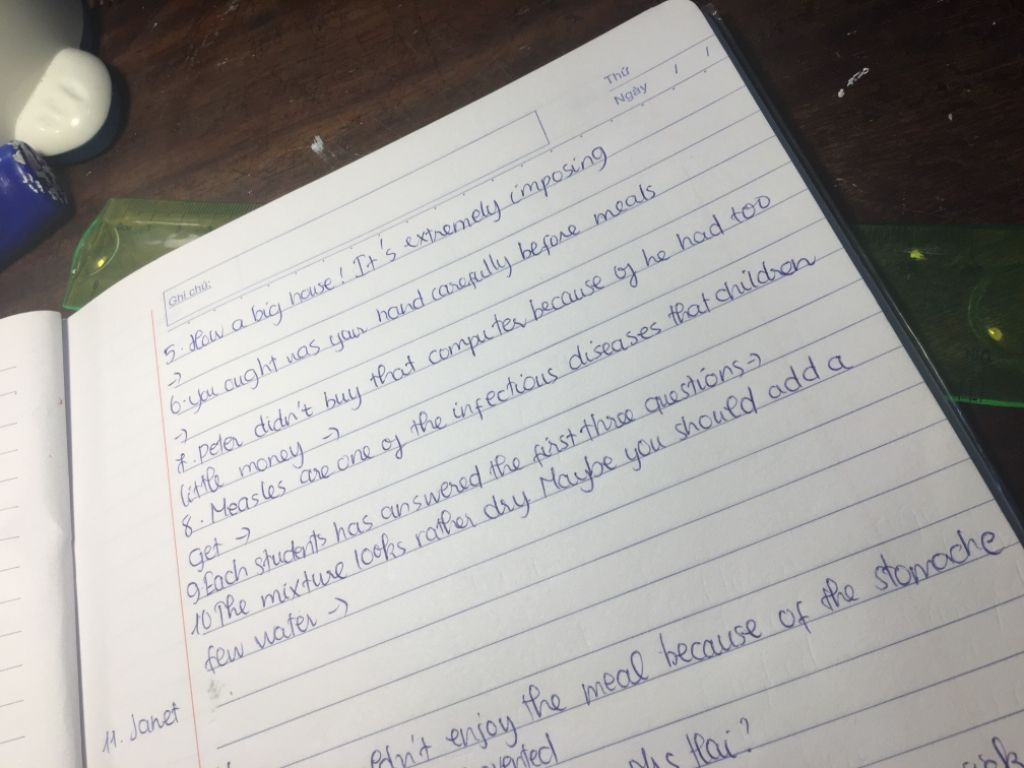 Thứ
Ngày / /
Ghi chú:
5. How a big house! It's extremely imposing
->
6. you ought was your hand carefully before meals
->
7. Peter didn't buy that computer because of he had too
little money ->
8. Measles are one of the infectious diseases that children
get ->
9 Each students has answered the first three questions ->
10 The mixture looks rather dry Maybe you should add a
few water ->
11. Janet
didn't enjoy the meal because of the stomache
Hai?